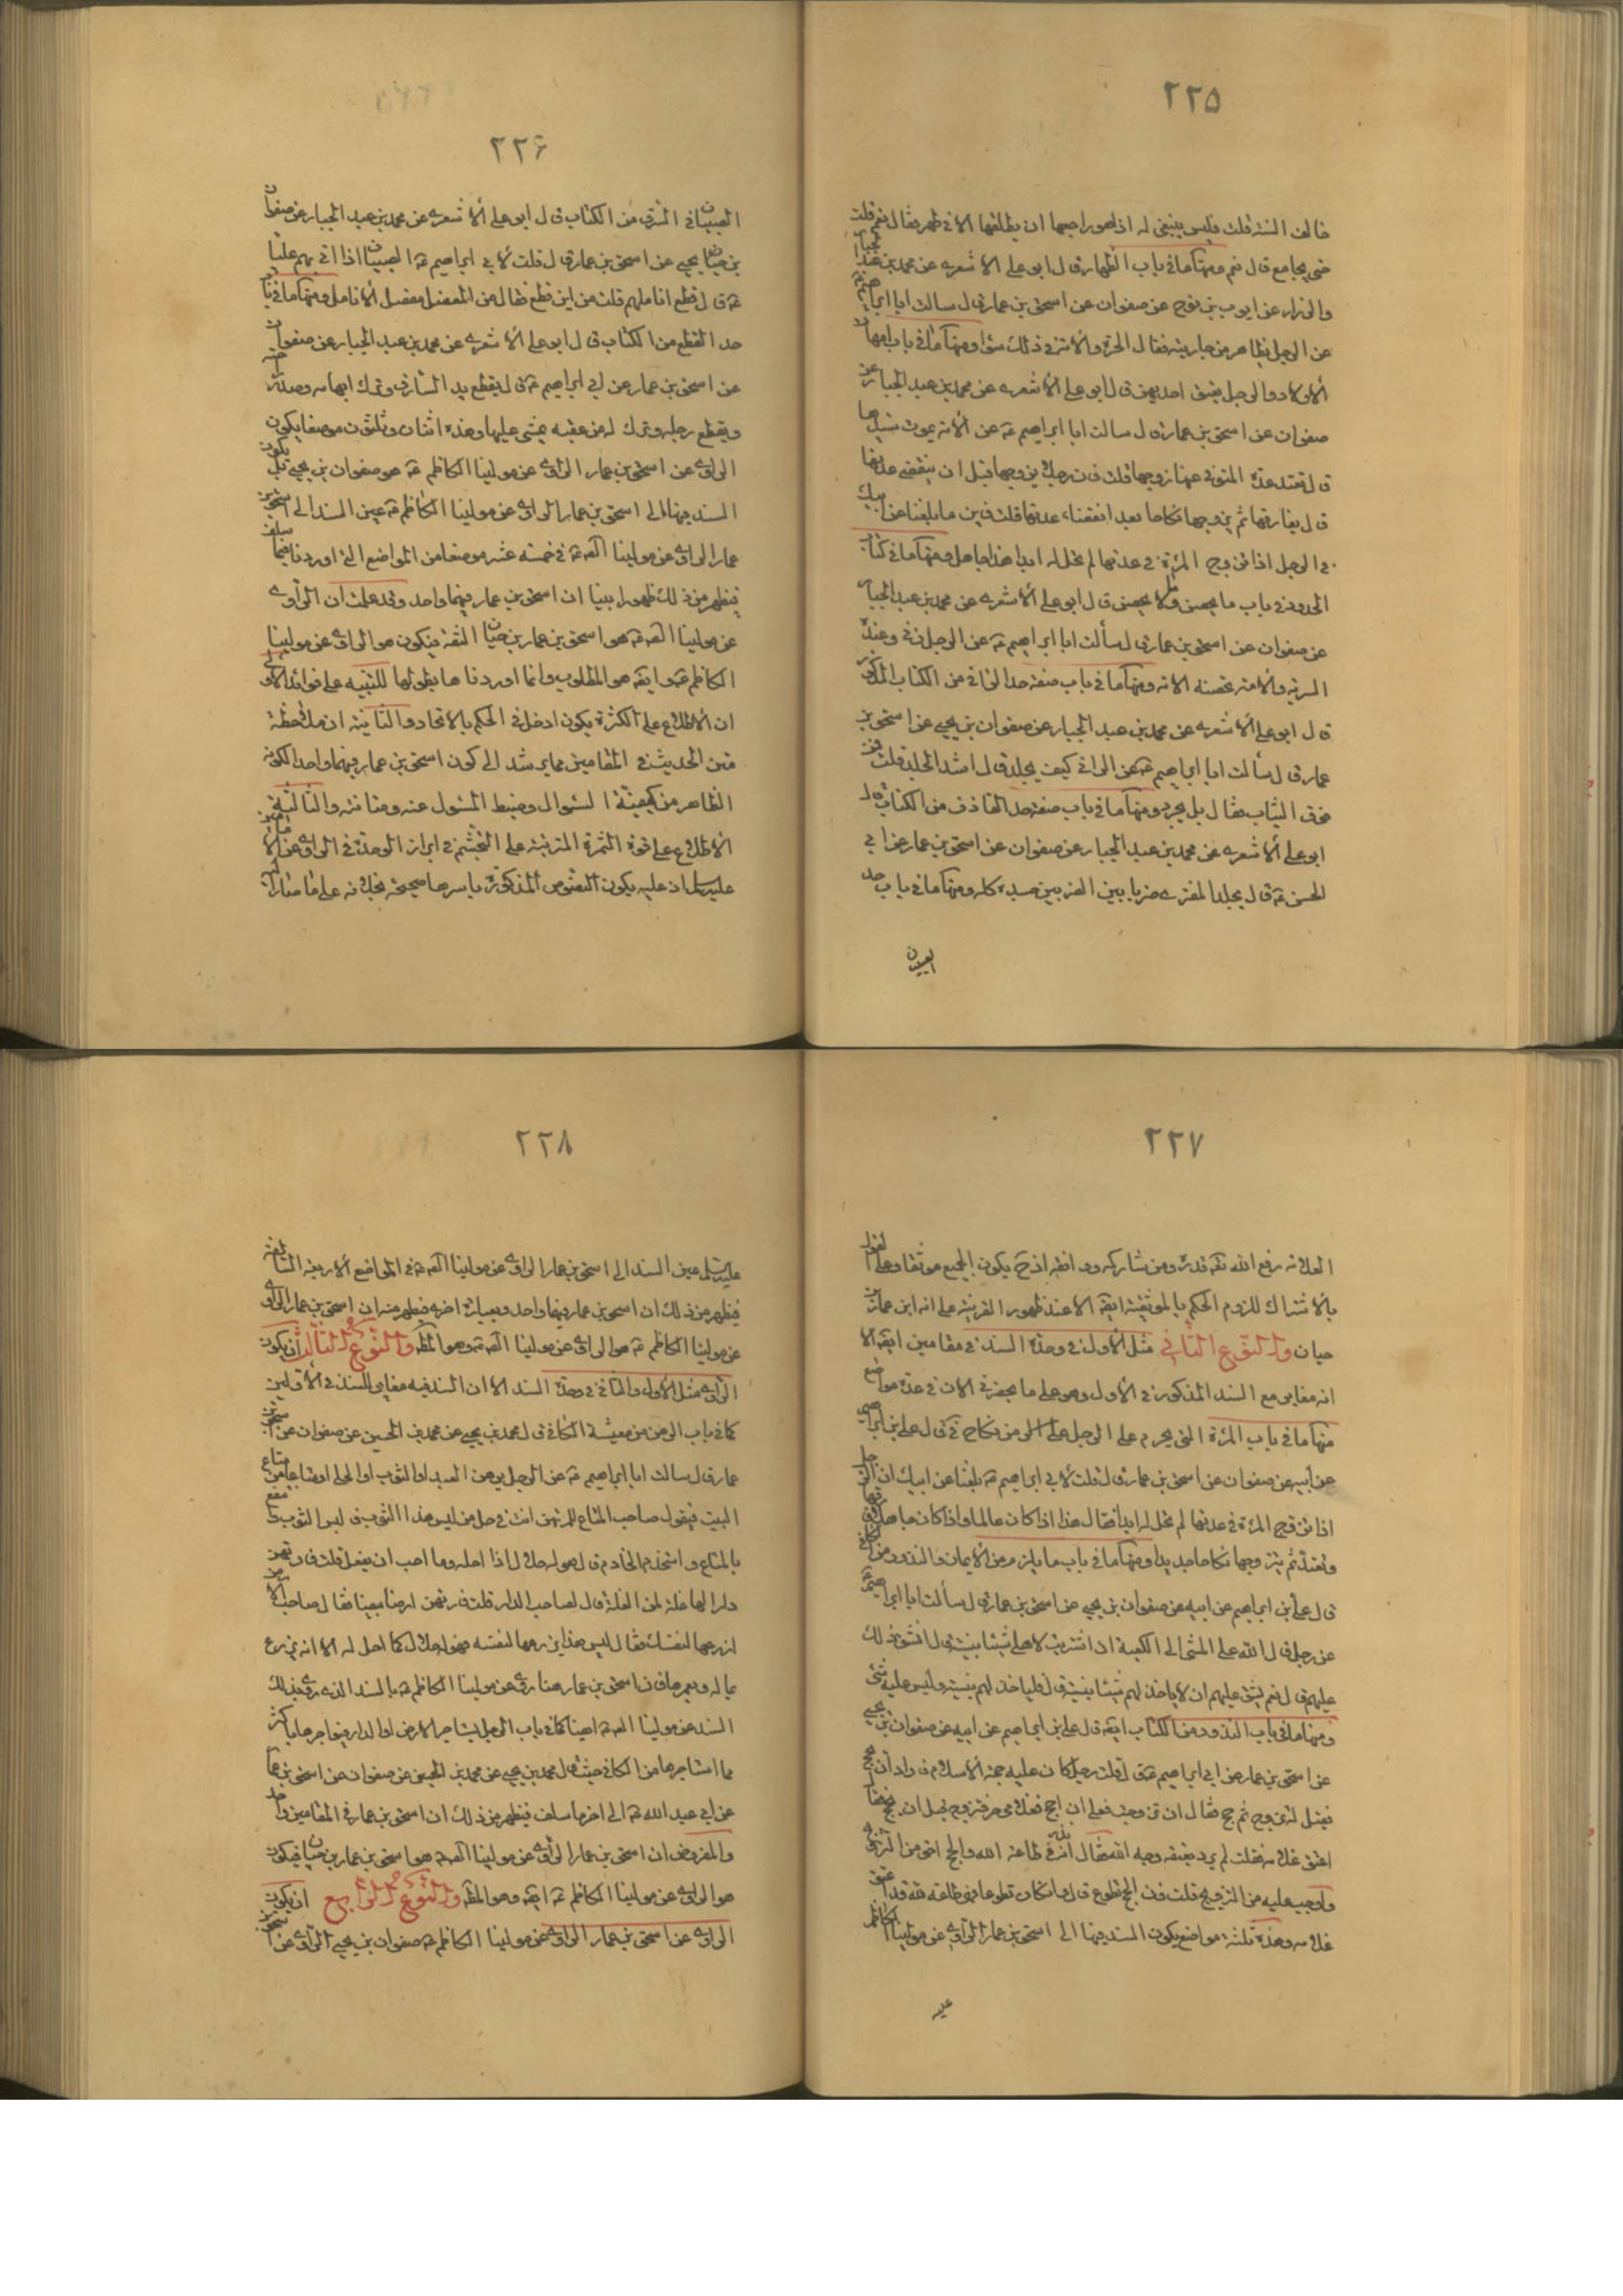 ٢٢٥
خالف السنة قلت فليس ينبغي له اذا هو راجعها ان يطلقها الا في طهر فقال نعم قلت
حتى يجامع قال نعم ومنها ما في باب الظهار قال ابو علي الاشعري عن محمد بن عبد الجبار
والرزاز عن ايوب بن نوح عن صفوان عن اسحق بن عمار قال سالت ابا ابراهيم ع
عن الرجل يظاهر من جاريته فقال الحرة والامة في ذلك سواء ومنها ما في باب امهات
الاولاد والرجل يعتق احديهن قال ابو علي الاشعري عن محمد بن عبد الجبار عن
صفوان عن اسحق بن عمار قال سالت ابا ابراهيم ع عن الامة يموت سيدها
قال تعتد عدة المتوفى عنها زوجها قلت فان رجلا يزوجها قبل ان ينقضي عدتها
قال يفارقها ثم يزوجها نكاحا بعد انقضاء عدتها قلت فاين ما بلغنا عن ابيك
في الرجل اذا تزوج المرئة في عدتها لم تحل له ابدا هذا جاهل ومنها ما في كتاب
الحدود في باب ما يحصن وما لا يحصن قال ابو علي الاشعري عن محمد بن عبد الجبار
عن صفوان عن اسحق بن عمار قال سألت ابا ابراهيم ع عن الرجل زنى وعنده
السرية والامة تحصنه الامة ومنها ما في باب صفة حد الزاني من الكتاب المذكور
قال ابو علي الاشعري عن محمد بن عبد الجبار عن صفوان بن يحيى عن اسحق بن
عمار قال سألت ابا ابراهيم ع عن الزاني كيف يجلد قال اشد الجلد قلت من
فوق الثياب فقال بل يجرد ومنها ما في باب صفة حد القاذف من الكتاب قال
ابو علي الاشعري عن محمد بن عبد الجبار عن صفوان عن اسحق بن عمار عن ابي
الحسن ع قال يجلد المفتري ضربا بين الضربين جسده كله ومنها ما في باب حد
الصبيان
٢٢۶
الصبيان في السرق من الكتاب قال ابو علي الاشعري عن محمد بن عبد الجبار عن صفوان
بن يحيى عن اسحق بن عمار قال قلت لابي ابراهيم ع الصبيان اذا اتي بهم عليا
ع قال قطع اناملهم قلت من اين قطع فقال من المفصل مفصل الانامل ومنها ما في باب
حد القطع من الكتاب قال ابو علي الاشعري عن محمد بن عبد الجبار عن صفوان
عن اسحق بن عمار عن ابي ابراهيم ع قال يقطع يد السارق ويترك ابهامه وصدر راحته
ويقطع رجله ويترك له من عقبه يمشي عليها وهذه اثنان وثلثون موضعا يكون
الراوي عن اسحق بن عمار الراوي عن مولينا الكاظم ع هو صفوان بن يحيى بل يكون
السند فيها الى اسحق بن عمار الراوي عن مولينا الكاظم ع عين السند الى اسحق بن
عمار الراوي عن مولينا الصادق ع في خمسة عشر موضعا من المواضع التي اوردنا فيما سلف
فيظهر من ذلك ظهورا بينا ان اسحق بن عمار فيهما واحد وقد علمت ان الراوي
عن مولينا الصادق ع هو اسحق بن عمار بن حيان الثقة فيكون هو الراوي عن مولينا
الكاظم ع ايضا وهو المطلوب وانما اوردنا ها بطولها للتنبيه على فوائد الاولى
ان الاطلاع على الكثرة يكون ادخل في الحكم بالاتحاد والثانية ان ملاحظة
متن الحديث في المقامين مما يرشد الى كون اسحق بن عمار فيهما واحدا لكونه
الظاهر من كيفية السؤال وضبط المسئول عنه ومتانته والثالثة
الاطلاع على قوة الثمرة المترتبة على التجشم في ابراز الوحدة في الراوي عن الامامين
عليهما السلام اذ عليه يكون النصوص المذكورة باسرها صحيحة بخلافه على ما صار اليه
٢٢٧
العلامة رفع الله تعه قدره ومن شاركه ووافقه اذ ح يكون الجميع موثقا وعلى القول
بالاشتراك للزوم الحكم بالموثقية ايضا الا عند ظهور القرينة على انه ابن عمار بن
حيان والنوع الثاني مثل الاول في وحدة السند في مقامين ايضا الا
انه مغاير مع السند المذكور في الاول وهو على ما يحضرني الان في عدة مواضع
منها ما في باب المرئة التي يحرم على الرجل من نكاح في قال علي بن ابراهيم
عن ابيه عن صفوان عن اسحق بن عمار قال قلت لابي ابراهيم ع بلغنا عن ابيك ان الرجل
اذا تزوج المرئة في عدتها لم تحل له ابدا فقال هذا اذا كان عالما واذا كان جاهلا فارقها
وتعتد ثم يتزوجها نكاحا جديدا ومنها ما في باب ما يلزم من الايمان والنذور من الكافي
قال علي بن ابراهيم عن ابيه عن صفوان بن يحيى عن اسحق بن عمار قال سألت ابا ابراهيم ع
عن رجل قال لله علي المشي الى الكعبة ان اشتريت لاهلي شيئا بنسية قال ايشق ذلك
عليهم قال نعم يشق عليهم ان لا ياخذ لهم شيئا بنسية قال فليا خذ لهم بنسية وليس عليه شئ
ومنها ما في باب النذور من الكتاب ايضا قال علي بن ابراهيم عن ابيه عن صفوان بن يحيى
عن اسحق بن عمار عن ابي ابراهيم ع قال قلت رجل كان عليه حجة الاسلام فاراد ان يحج
فقيل له تزوج ثم حج فقال ان تزوجت قبل ان احج فغلامي حر فتزوج قبل ان يحج فقال
اعتق غلامه فقلت لم يرد بعتقه وجه الله فقال انه نذر في طاعة الله والحج احق من التزويج
واوجب عليه من التزويج قلت فان الحج تطوع قال وان كان تطوعا فهي طاعة لله قد اعتق
غلامه وهذه ثلثة مواضع يكون السند فيها الى اسحق بن عمار الراوي عن مولينا الكاظم
عليه
٢٢٨
عليه السلام عين السند الى اسحق بن عمار الراوي عن مولينا الصادق ع في المواضع الاربعة السالفة
فيظهر من ذلك ان اسحق بن عمار فيهما واحد وبعبارة اخرى فظهر منه ان اسحق بن عمار الراوي
عن مولينا الكاظم ع هو الراوي عن مولينا الصادق ع وهو المط والنوع الثالث ان يكون
الراوي مثل الاول والثاني في وحدة السند الا ان السند فيه مغاير للسند في الاولين
كما في باب الرهن من معيشة الكافي قال محمد بن يحيى عن محمد بن الحسين عن صفوان عن اسحق بن
عمار قال سالت ابا ابراهيم ع عن الرجل يرهن العبد او الثوب او الحلي او متاعا من متاع
البيت فيقول صاحب المتاع للمرتهن انت في حل من لبس هذا الثوب فالبس الثوب وانتفع
بالمتاع واستخدم الخادم قال هو له حلال اذا احله وما احب ان يفعل قلت فارتهن
دارا لها غلة لمن الغلة قال لصاحب الدار قلت فارتهن ارضا بيضا فقال صاحب الارض
ازرعها لنفسك فقال ليس هذا مثل هذا يزرعها لنفسه فهو له حلال كما احل له الا انه يزرع
بماله ويعمرها فان اسحق بن عمار هنا روى عن مولينا الكاظم ع بالسند الذي روى بذلك
السند عن مولينا الصادق ع ايضا كما في باب الرجل يستاجر الارض او الدار فيواجرها باكثر
مما استاجرها من الكافي حيث قال محمد بن يحيى عن محمد بن الحسين عن صفوان عن اسحق بن عمار
عن ابي عبد الله ع الى اخر ما سلف فيظهر من ذلك ان اسحق بن عمار في المقامين واحد
والمفروض ان اسحق بن عمار الراوي عن مولينا الصادق ع هو اسحق بن عمار بن حيان فيكون
هو الراوي عن مولينا الكاظم ع ايضا وهو المط والنوع الرابع ان يكون
الراوي عن اسحق بن عمار الراوي عن مولينا الكاظم ع صفوان بن يحيى الراوي عن اسحق بن